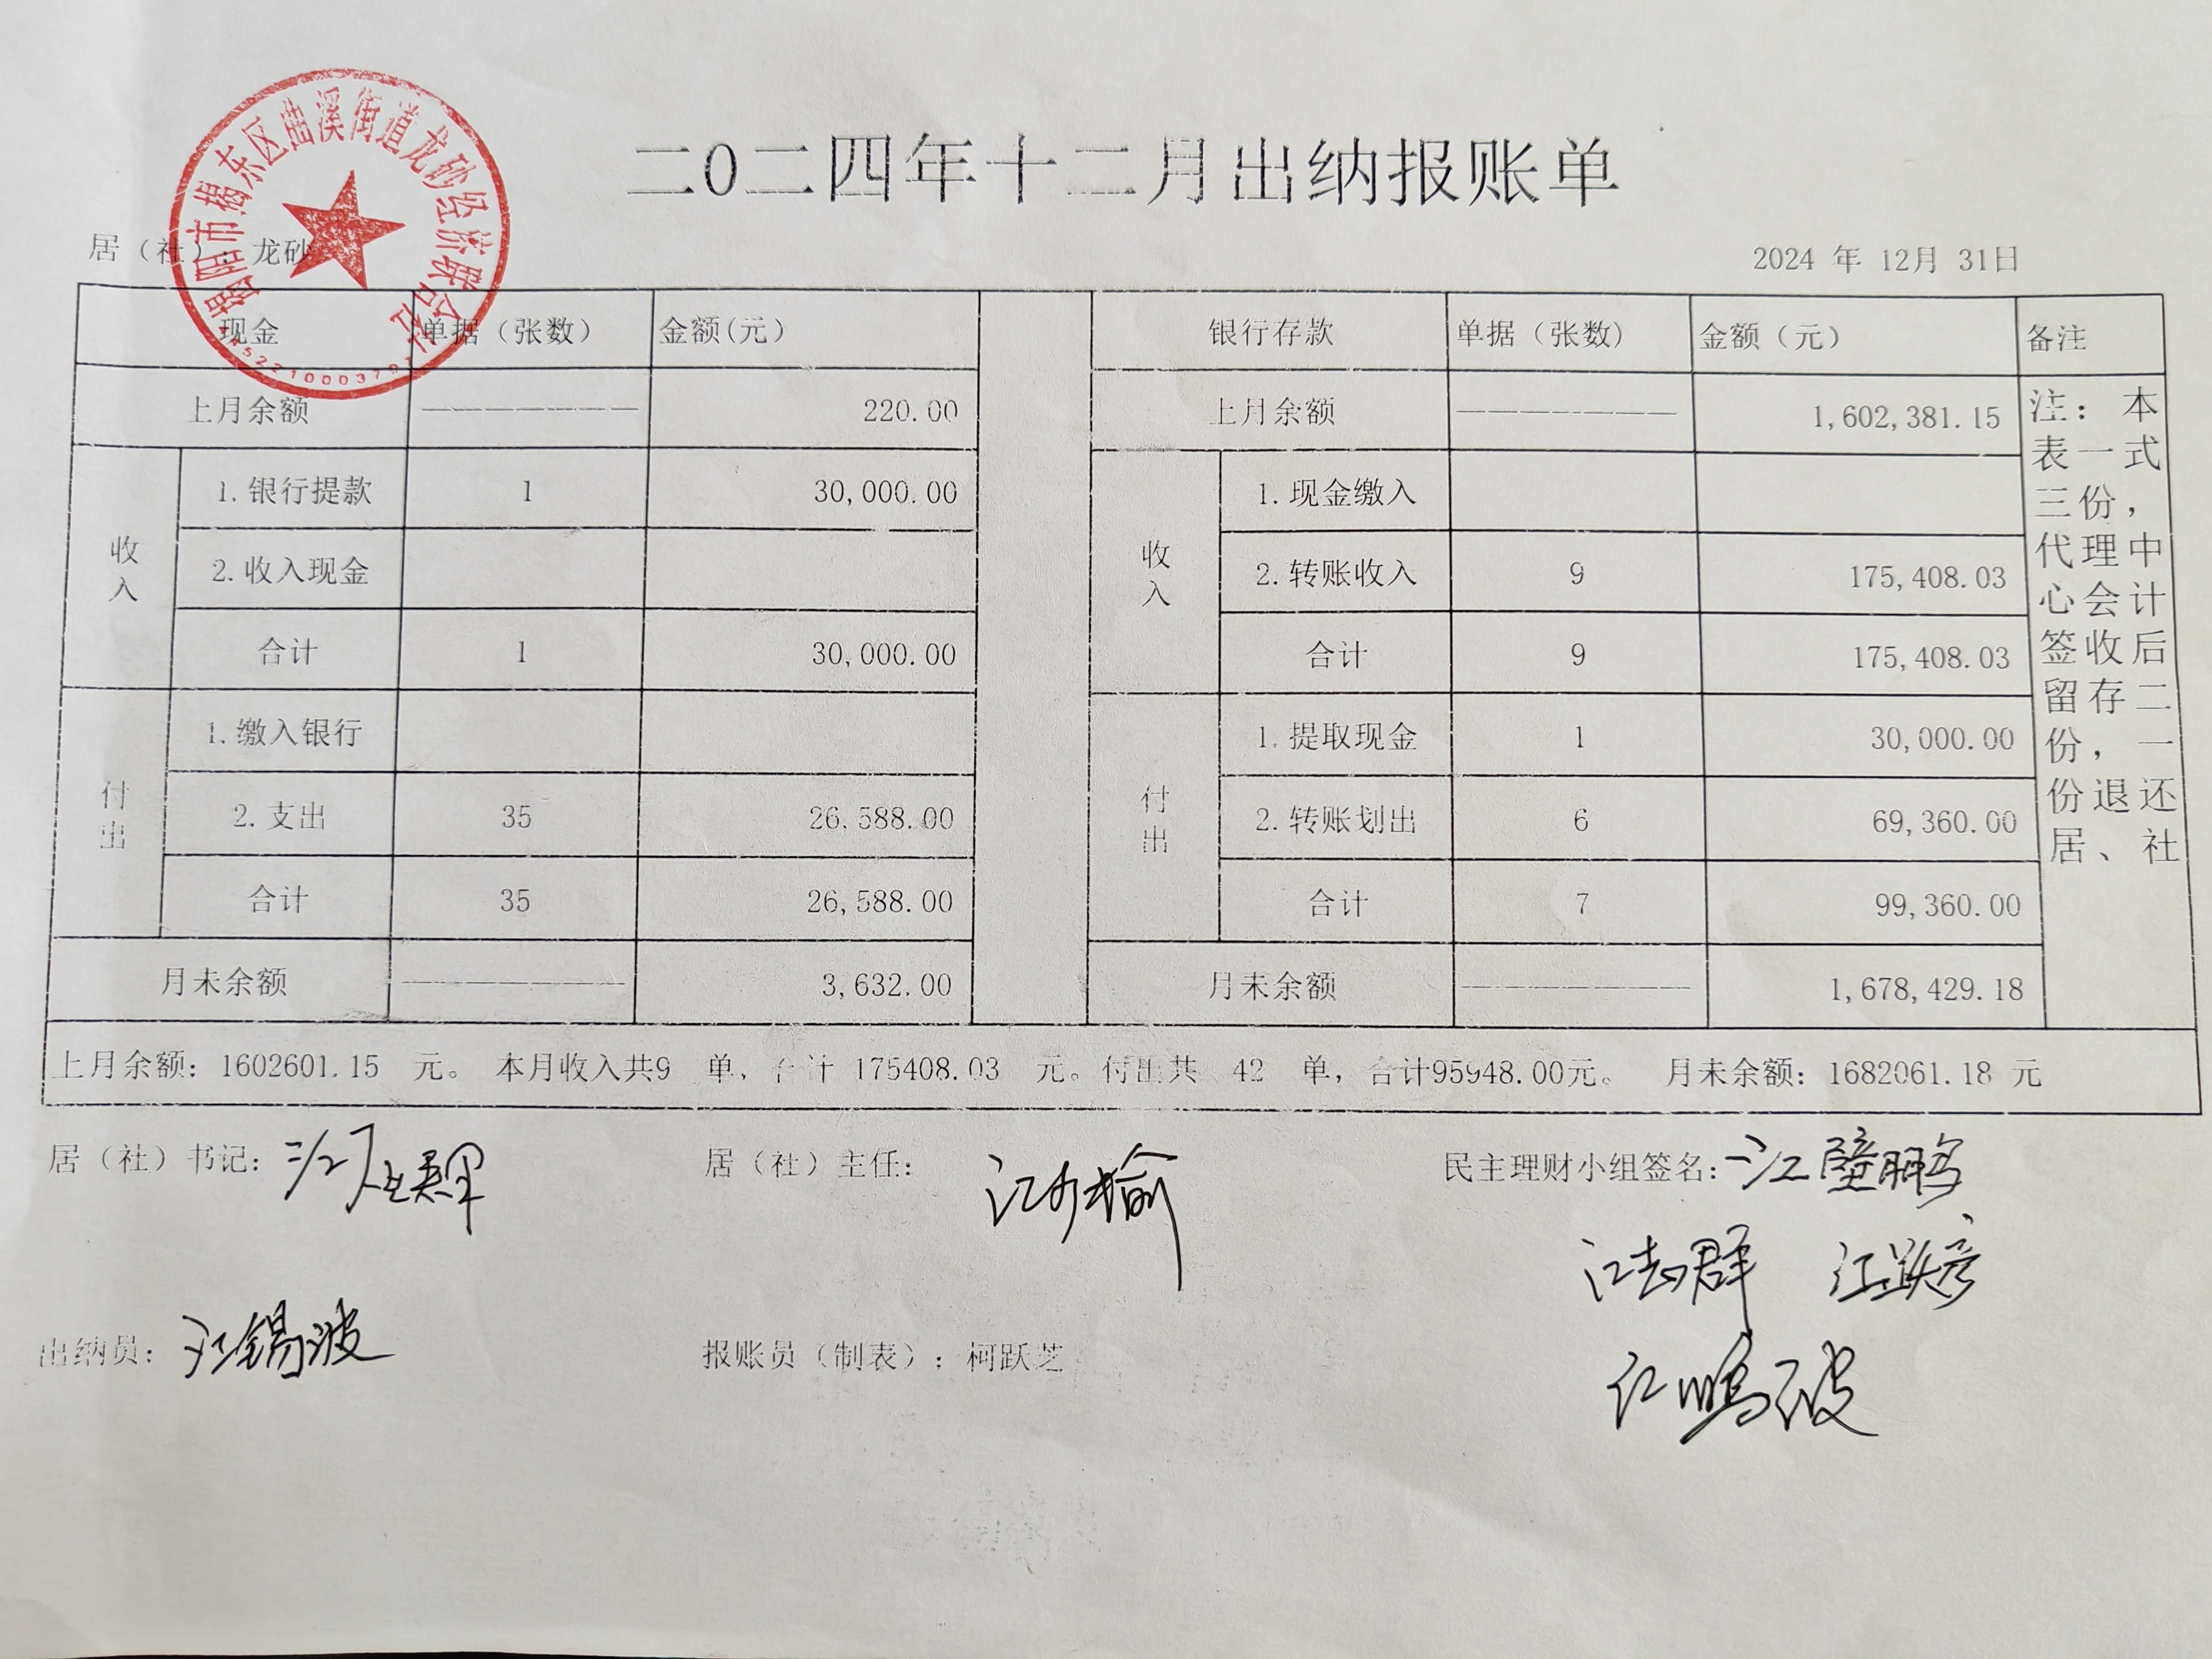 二0二四年十二月出纳报账单
揭阳市揭东区曲溪街道龙砂经济联合社
居（社）：龙砂
2024 年 12月 31日
现金 单据（张数） 金额(元) 银行存款 单据（张数) 金额（元） 备注
上月余额 —————— 220.00 上月余额 —————— 1,602,381.15
收入 1.银行提款 1 30,000.00 收入 1.现金缴入
2.收入现金 2.转账收入 9 175,408.03
合计 1 30,000.00 合计 9 175,408.03
付出 1.缴入银行 付出 1.提取现金 1 30,000.00
2.支出 35 26,588.00 2.转账划出 6 69,360.00
合计 35 26,588.00 合计 7 99,360.00
月未余额 —————— 3,632.00 月未余额 —————— 1,678,429.18
注：本
表一式
三份，
代理中
心会计
签收后
留存二
份，一
份退还
居、社
上月余额：1602601.15 元。 本月收入共9 单，合计 175408.03 元。付出共 42 单，合计95948.00元。 月未余额：1682061.18 元
居（社）书记： 居（社）主任： 民主理财小组签名：江壁鹏
出纳员：江锡波 报账员（制表）：柯跃芝
江鹏波